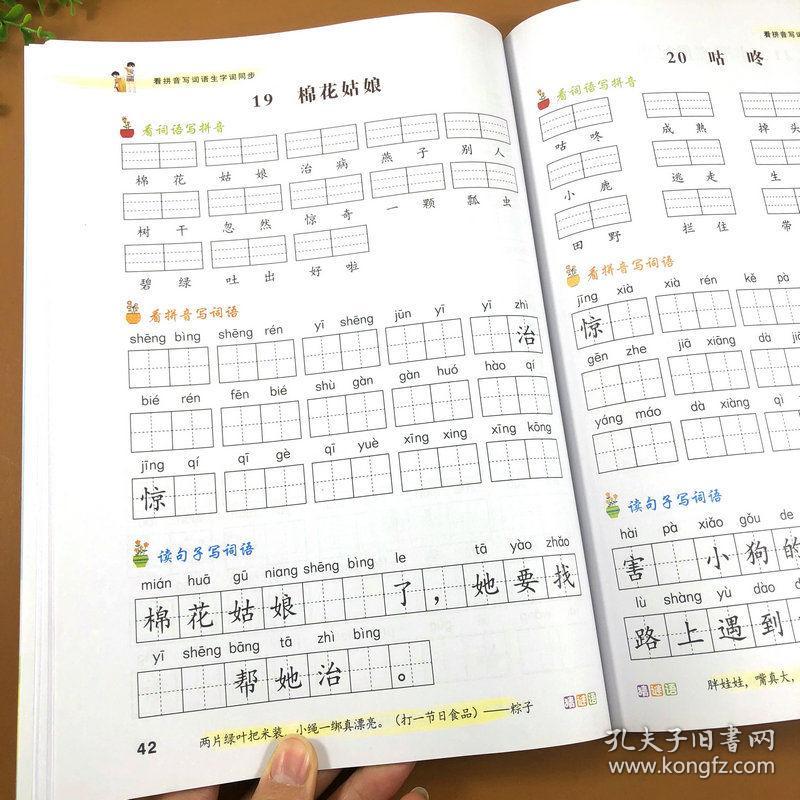 看拼音写词语生字词同步
19 棉花姑娘
看词语写拼音
棉花 姑娘 治病 燕子 别人
树干 忽然 惊奇 一颗 瓢虫
碧绿 吐出 好啦
看拼音写词语
shēng bìng shēng rén yī shēng jūn yī yī zhì
治
bié rén fēn bié shù gàn gàn huó hào qí
jīng qí qī gè qī yuè xīng xing xīng kōng
惊
读句子写词语
mián huā gū niang shēng bìng le tā yào zhǎo
棉花姑娘 了，她要找
yī shēng bāng tā zhì bìng
帮她治 。
42
两片绿叶把米装，小绳一绑真漂亮。（打一节日食品）——粽子
猜谜语
看拼音写词
20 咕咚
看词语写拼音
咕咚 成熟 掉头
小鹿 逃走 生
田野 拦住 带
看拼音写词语
jīng xià xià rén kě pà
惊
gēn zhe jiā xiāng dà jiā
yáng máo dà xiàng qì
读句子写词语
hài pà xiǎo gǒu de
害 小狗的
lù shàng yù dào
路上遇到
胖娃娃，嘴真大，
猜谜语
孔夫子旧书网
www.kongfz.com